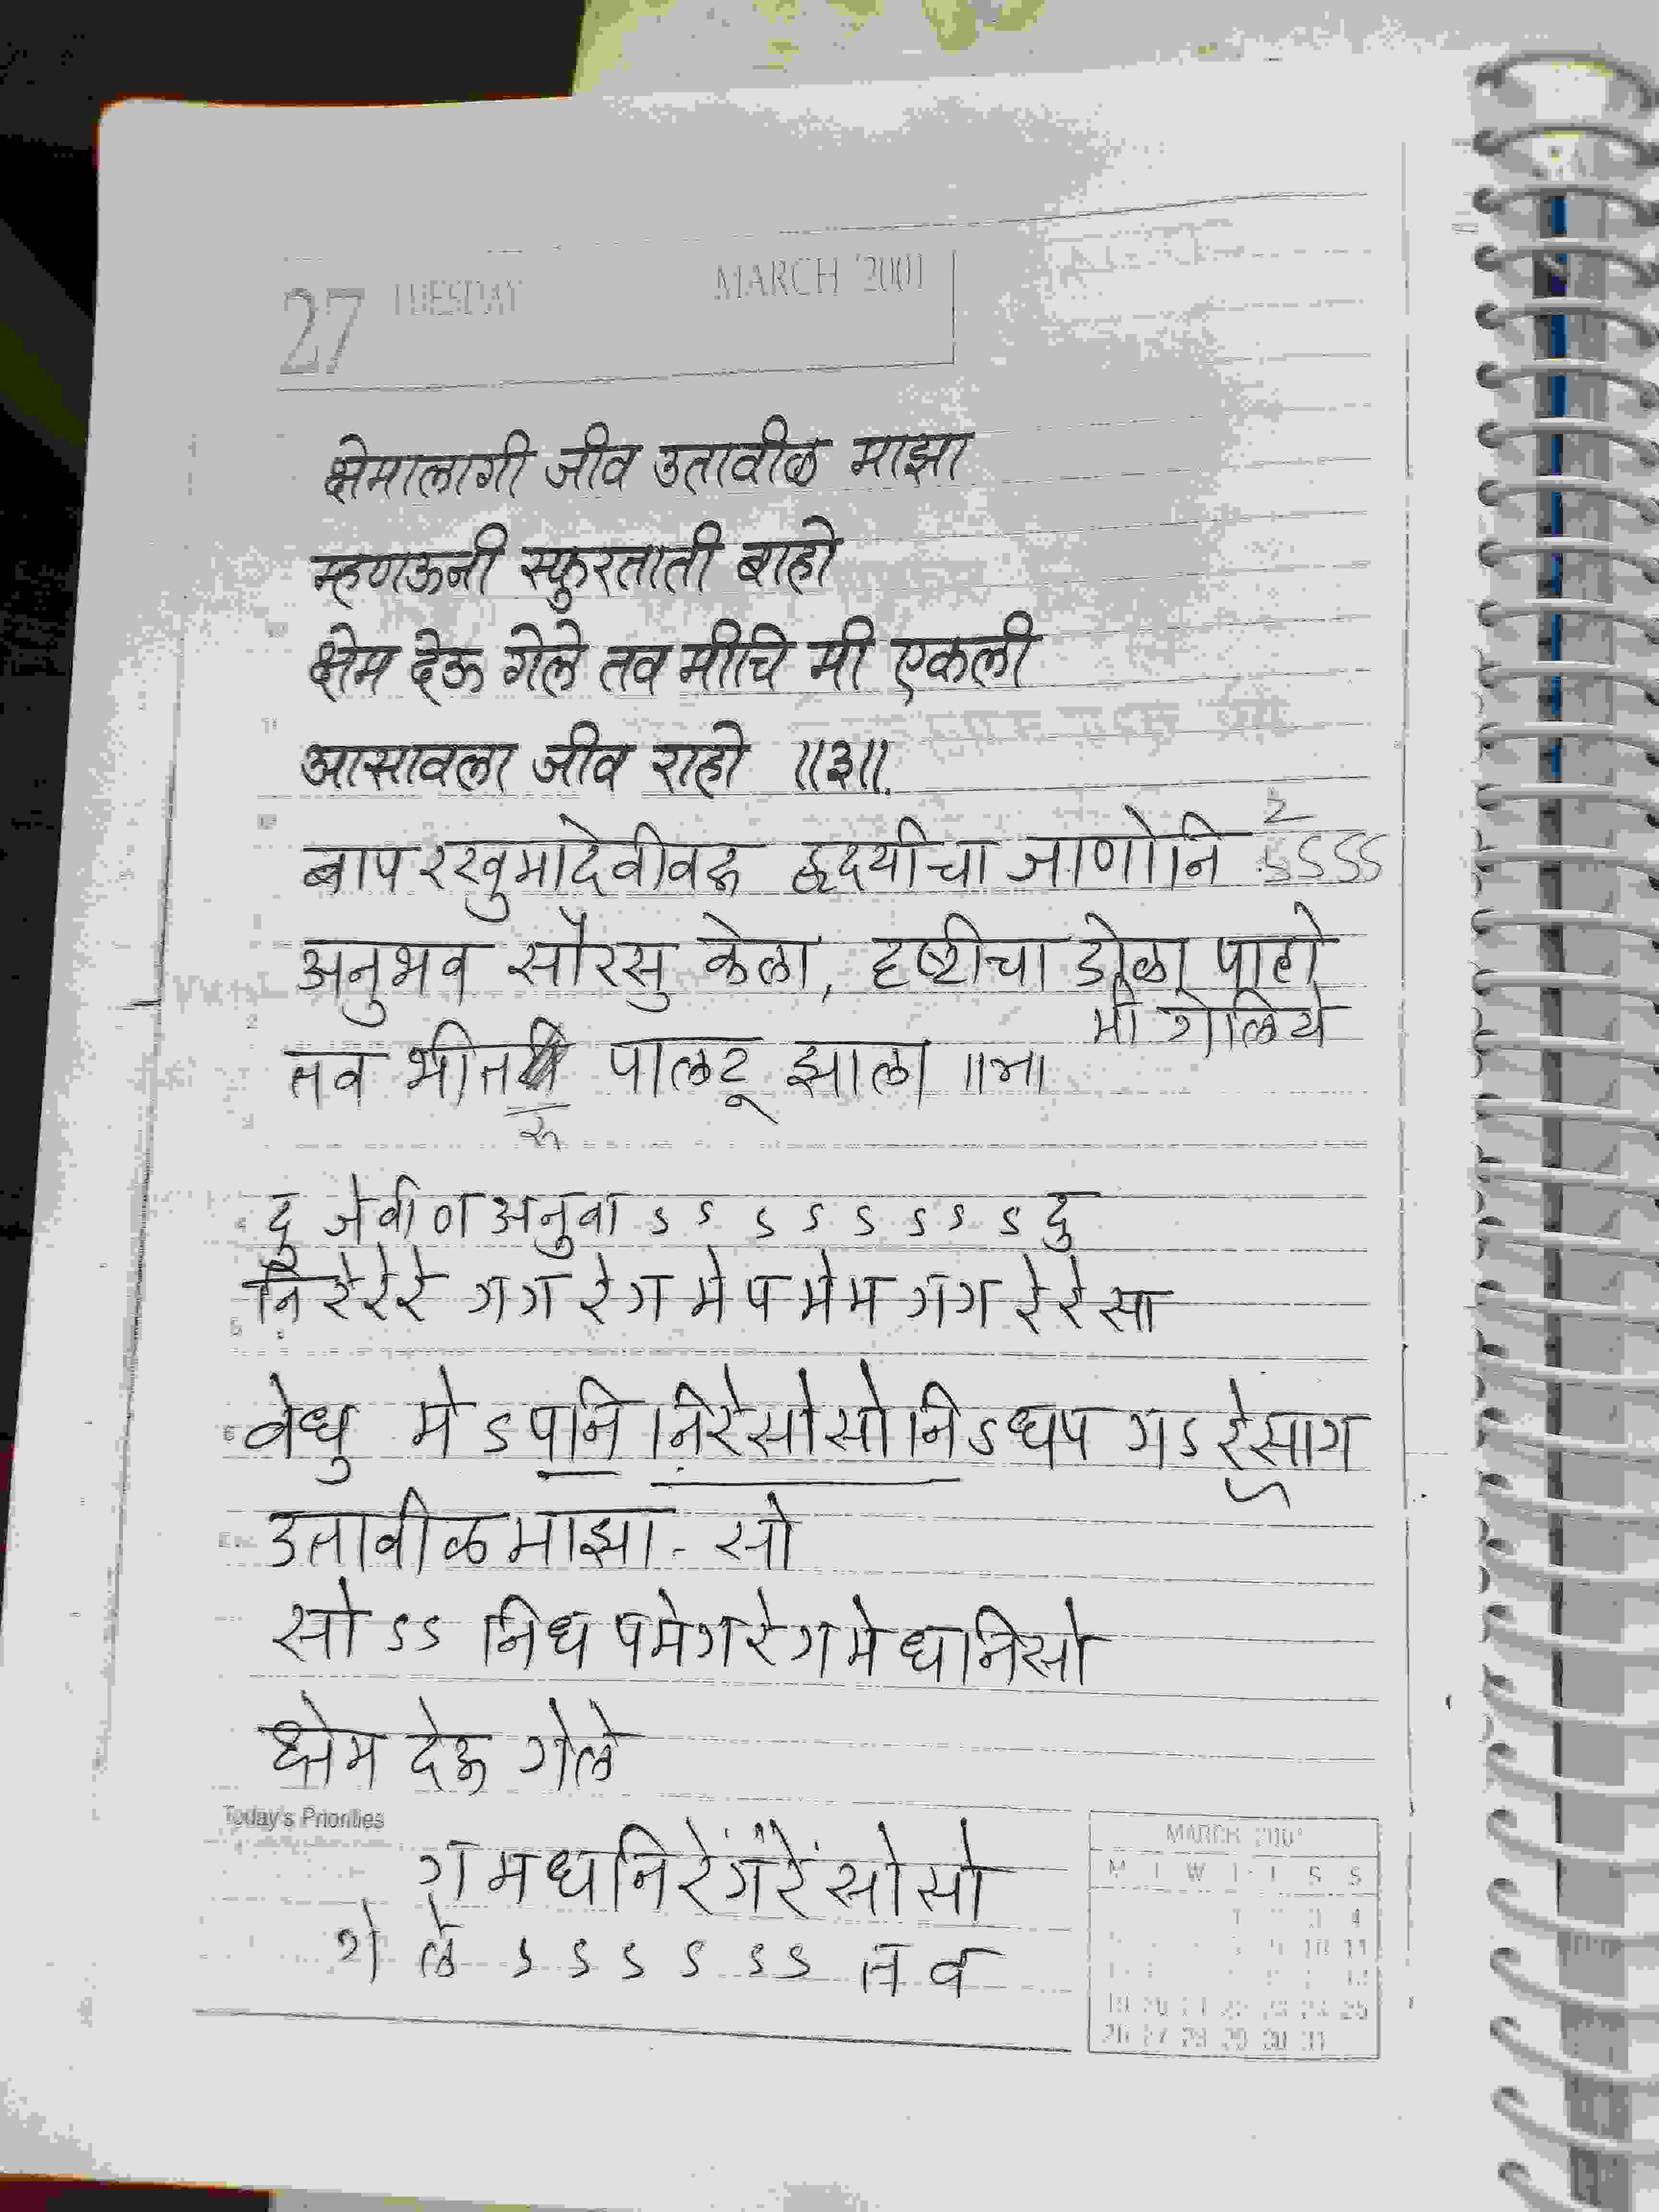 27 TUESDAY MARCH 2001
क्षेमालागी जीव उतावीळ माझा
म्हणऊनी स्फुरताती बाहो
क्षेम देऊ गेले तव मीचि मी एकली
आसावला जीव राहो ॥३॥
बाप रखुमादेवीवरु हृदयीचा जाणोनि ऽऽऽऽ
अनुभव सौरसु केला, दृष्टीचा डोळा पाहो
मी गेलिये
तव भीतरी पालटू झाला ॥४॥
रु
दु जेवीण अनुवा ऽ ऽ ऽ ऽ ऽ ऽ ऽ ऽ दु
नि रे रे रे ग ग रे ग मे प मे म ग ग रे रे सा
वेधु मे ऽ प नि नि रे सो सो नि ऽ ध प ग ऽ रे सा ग
उतावीळ माझा - सो
सो ऽऽ नि ध प मे ग रे ग मे ध नि सो
क्षेम देऊ गेले
Today's Priorities
ग म ध नि रें गं रें सो सो
गे ले ऽ ऽ ऽ ऽ ऽ ऽ त व
MARCH 2001
M T W T F S S
19 20 21 22 23 24 25
26 27 28 29 30 31